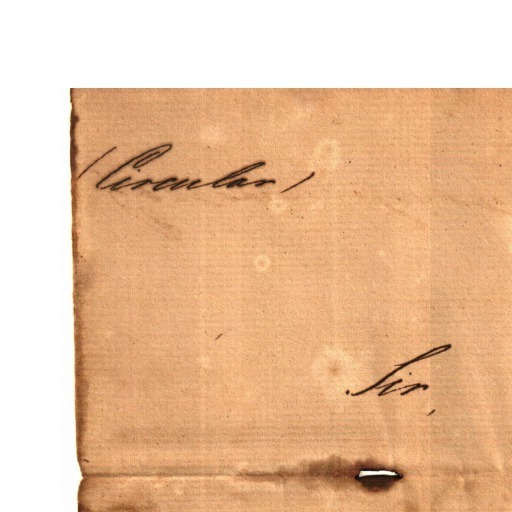 (Circular)
Sir,